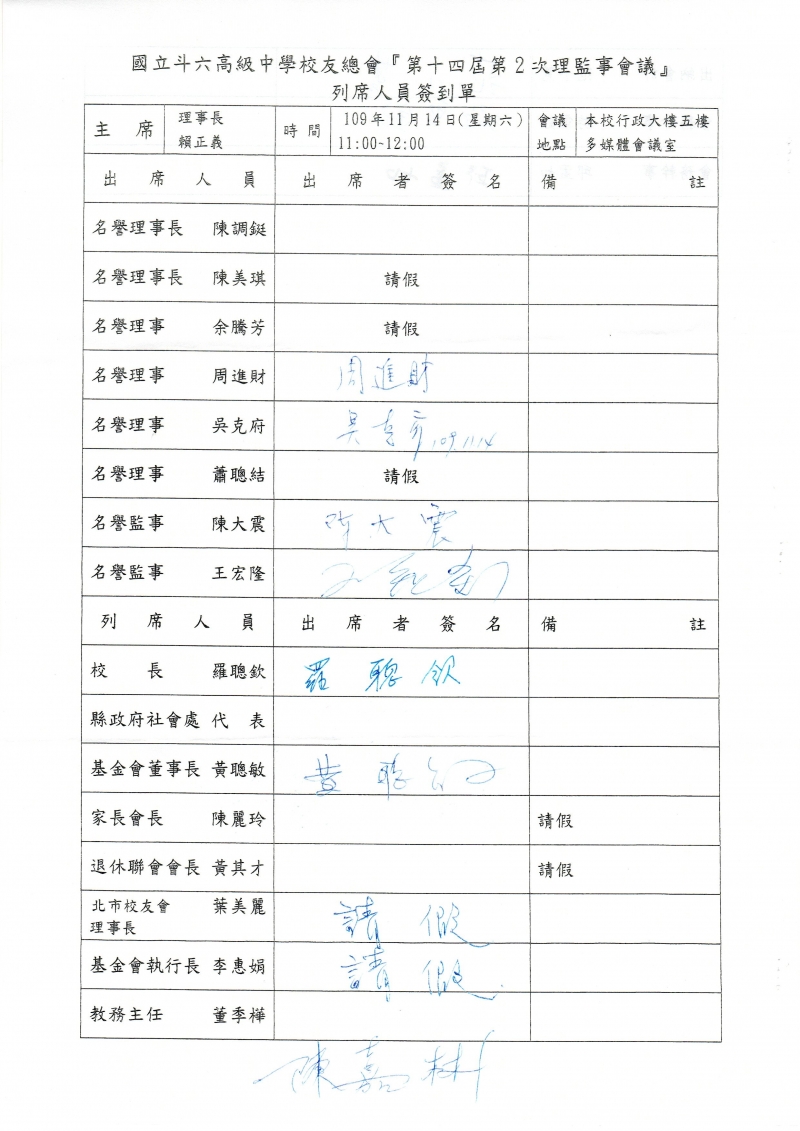 國立斗六高級中學校友總會『第十四屆第2次理監事會議』
列席人員簽到單
主席 理事長 賴正義 時間 109年11月14日(星期六) 11:00~12:00 會議地點 本校行政大樓五樓多媒體會議室
出席人員 出席者簽名 備註
名譽理事長 陳調鋌
名譽理事長 陳美琪 請假
名譽理事 余騰芳 請假
名譽理事 周進財 周進財
名譽理事 吳克府 吳克府 109.11.14
名譽理事 蕭聰結 請假
名譽監事 陳大震 陳大震
名譽監事 王宏隆
列席人員 出席者簽名 備註
校長 羅聰欽 羅聰欽
縣政府社會處 代表
基金會董事長 黃聰敏 黃聰敏
家長會長 陳麗玲 請假
退休聯會會長 黃其才 請假
北市校友會理事長 葉美麗 請假
基金會執行長 李惠娟 請假
教務主任 董季樺
陳嘉林